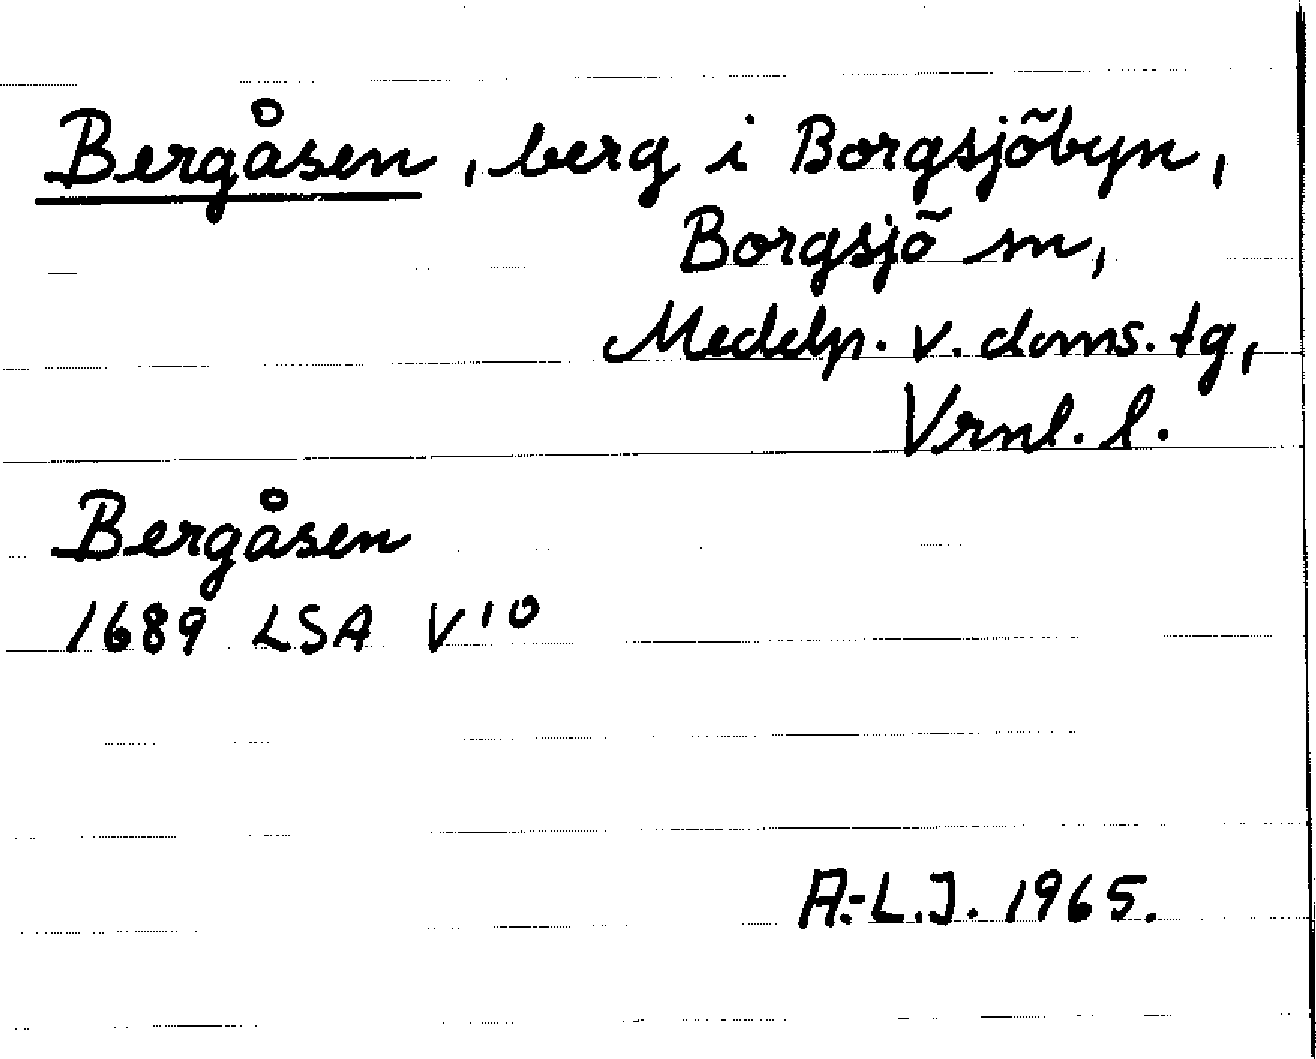 Bergåsen, berg i Borgsjöbyn,
Borgsjö sn,
Medelp. v. doms. tg,
Vrnl. l.
Bergåsen
1689 LSA V¹⁰
A.-L.J. 1965.